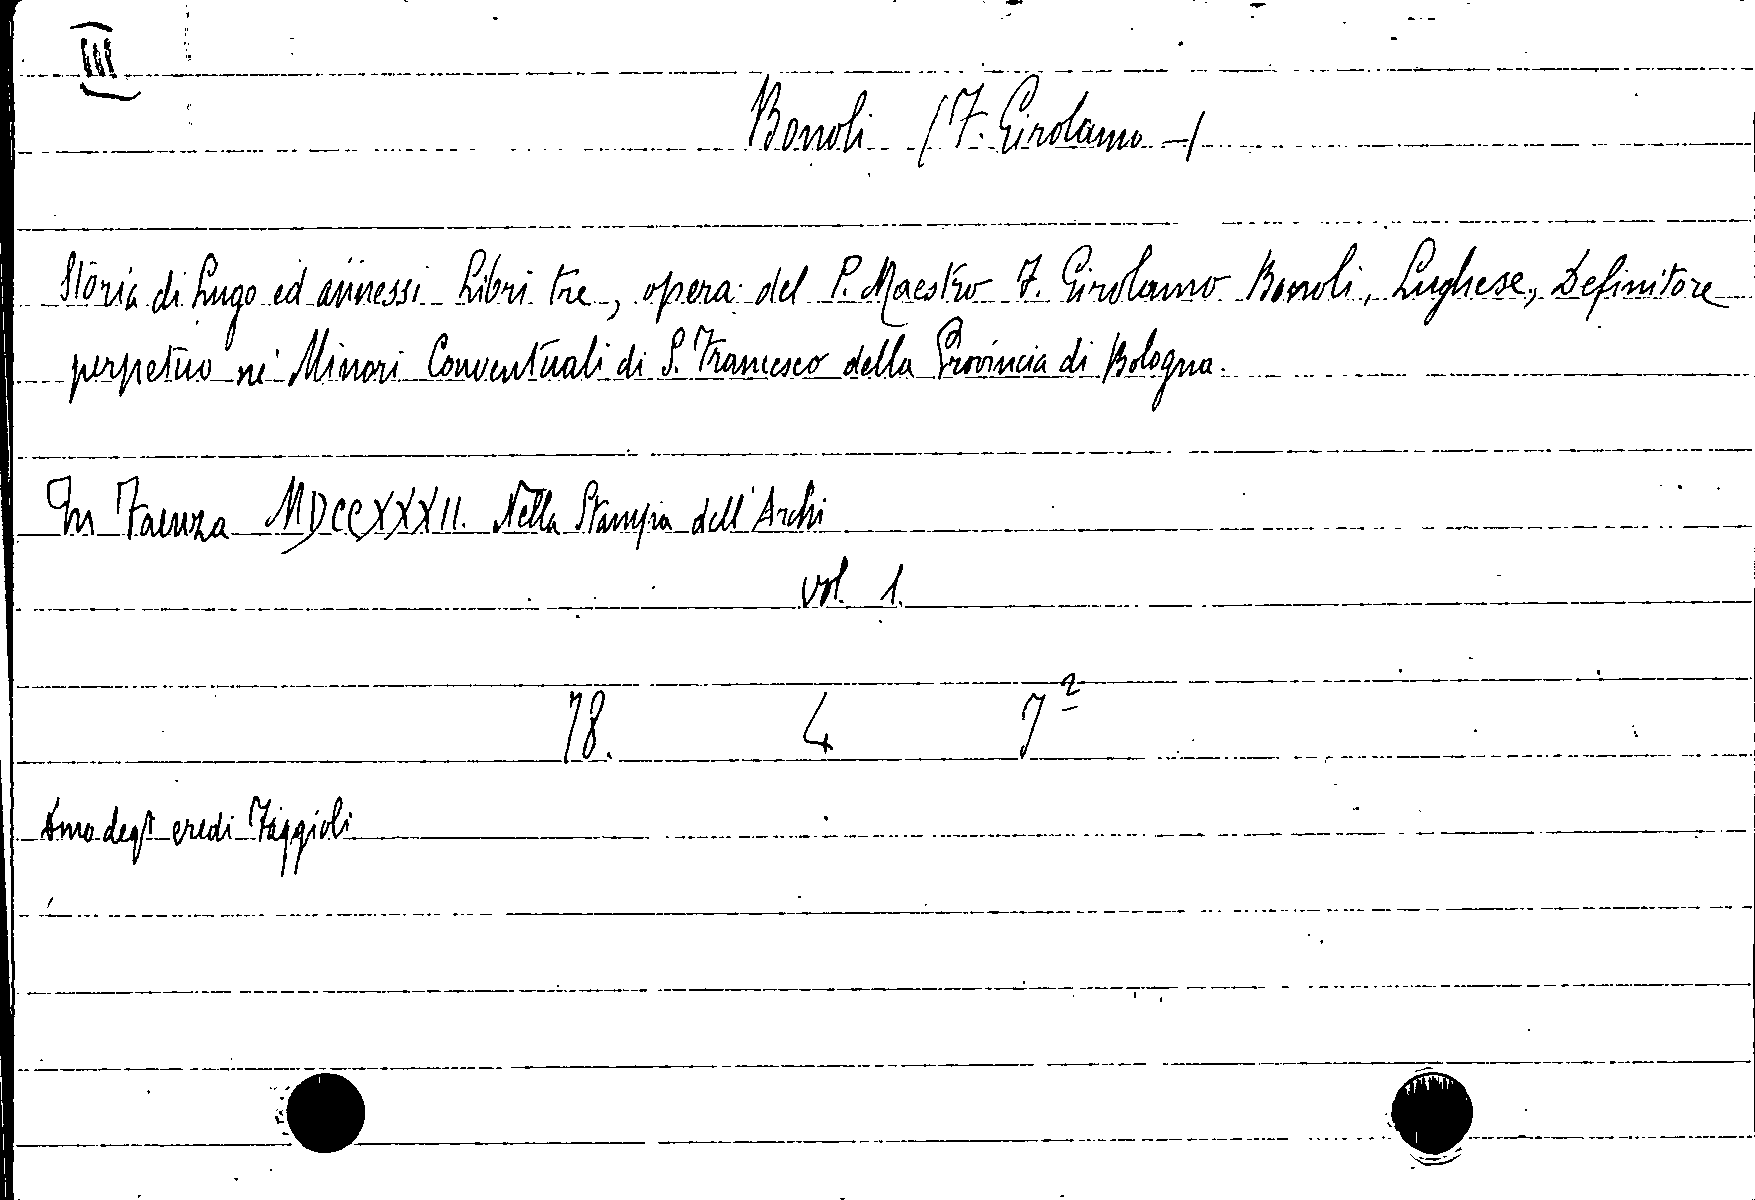 III
Bonoli (F. Girolamo -)
Storia di Lugo ed annessi Libri tre, opera del P. Maestro F. Girolamo Bonoli, Lughese, Definitore
perpetuo ne' Minori Conventuali di S. Francesco della Provincia di Bologna.
In Faenza MDCCXXXII. Nella Stampa dell'Archi
vol. 1.
78. 4 7²
degl' eredi Faggioli